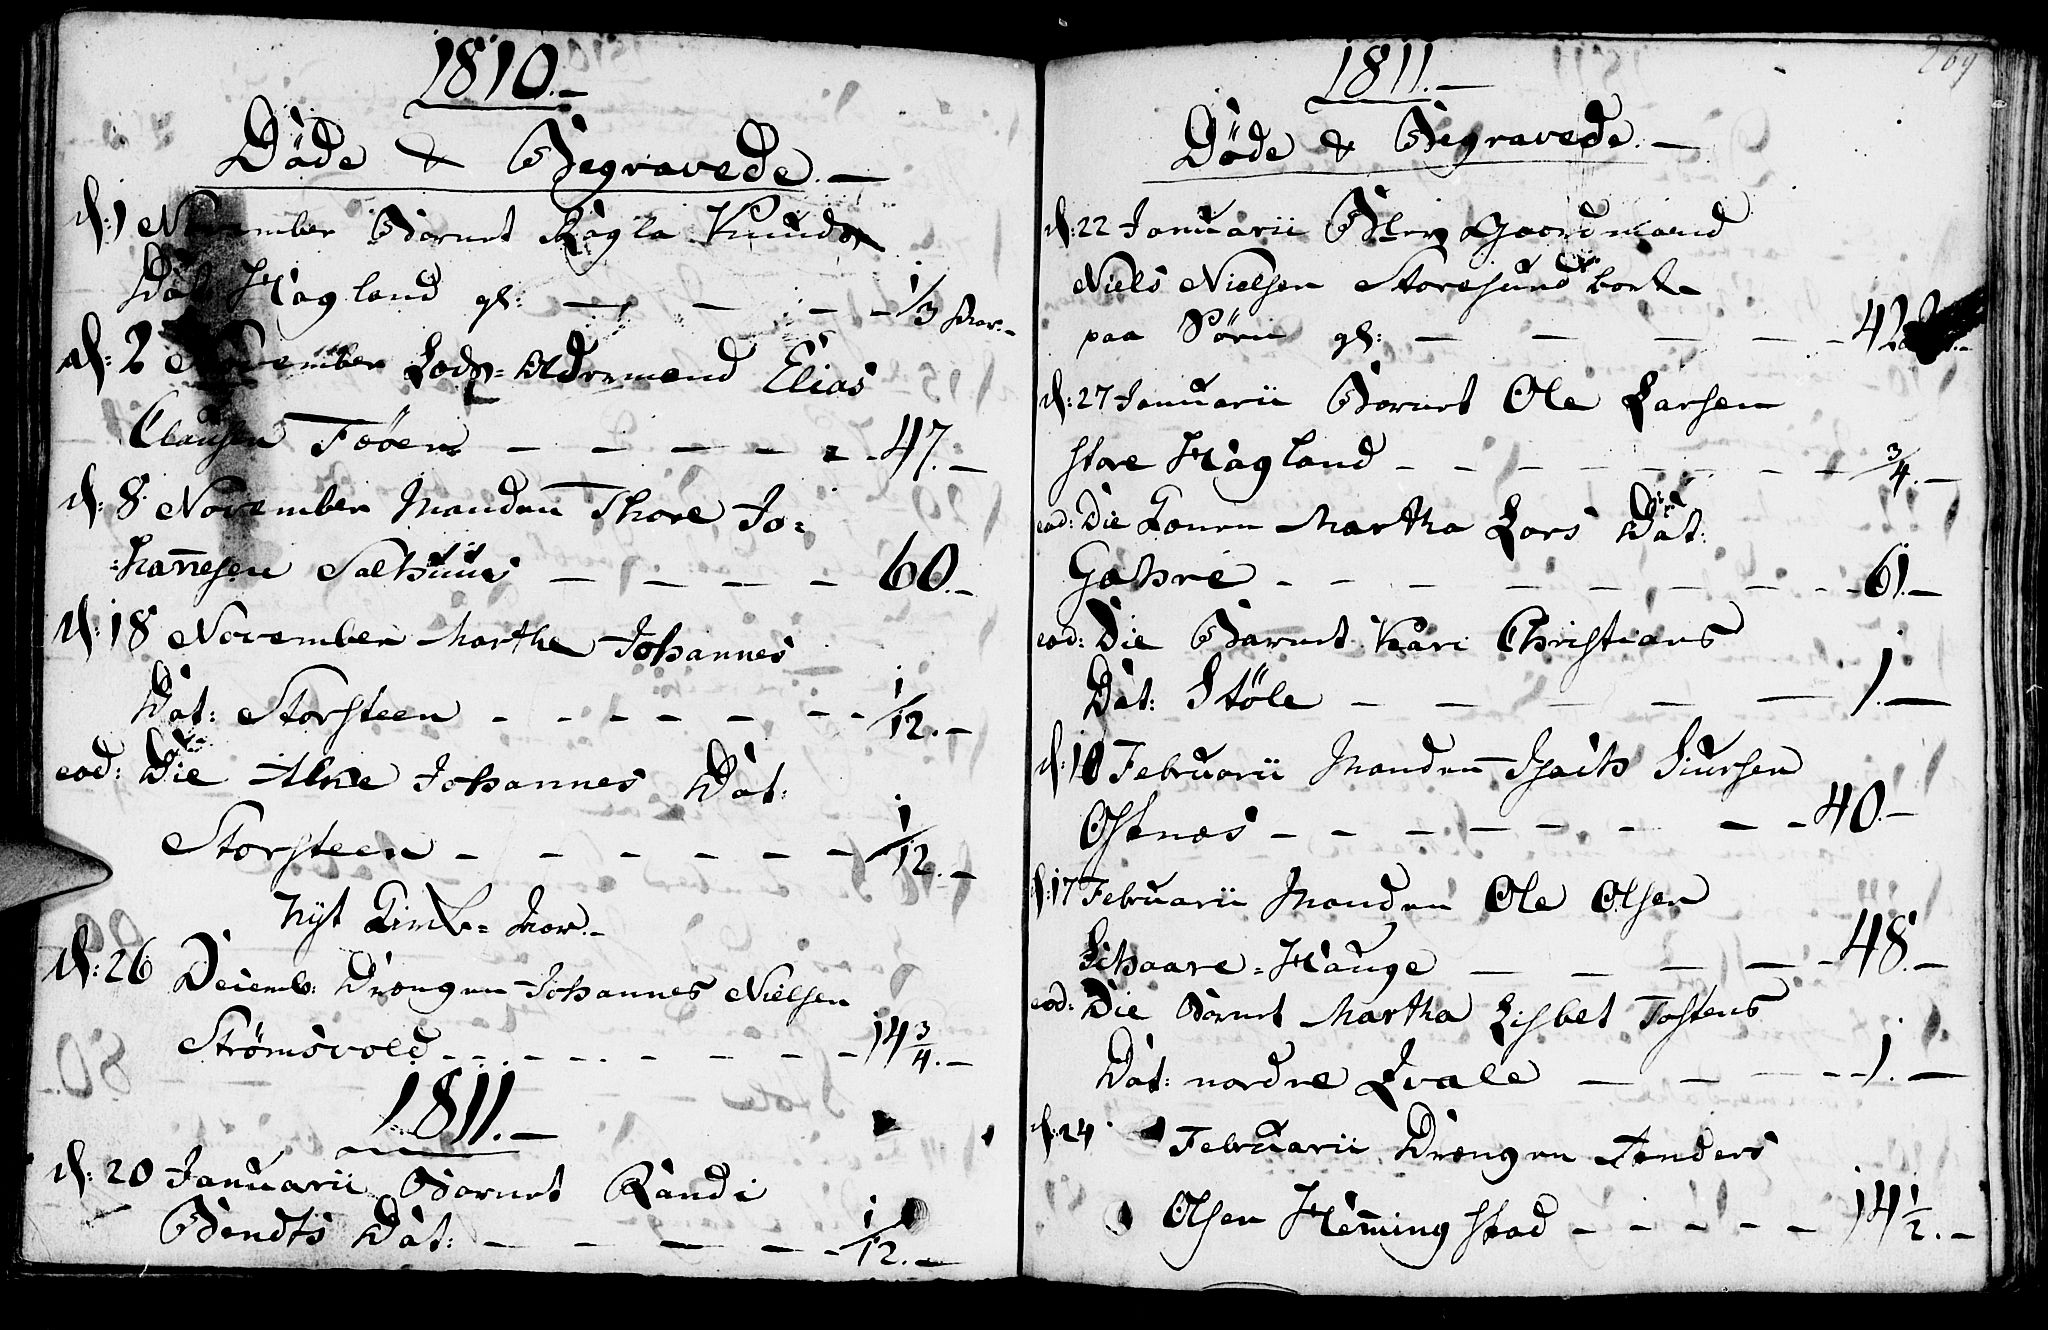 1810.-
Döde & Begravede.-
d: 1 November Barnet Ragla Knuds
Dat: Hagland gl: - - - - 1/3 Aar.-
d: 2 November Lods-Oldermand Elias
Clausen Føöen - - - - - 47.-
d: 8 November Manden Thore Jo=
=hannesen Salhuus - - - - 60.-
d: 18 November Marthe Johannes
Dat: Storsteen - - - - - - 1/12.-
eod: Die Alke Johannes Dat:
Storsteen - - - - - - 1/12.-
Nyt Kirke-Aar.-
d: 26 Decemb: Drengen Johannes Nielsen
Strømsvold - - - - - - - 14 3/4.-
1811.-
d: 20 Januarii Barnet Randi
Bendts Dat: - - - - - 1/12.-
269
1811.-
Döde & Begravede.-
d: 22 Januarii Blev Gaardmand
Niels Nielsen Storesund bort
paa Söen gl: - - - - - 42
d: 27 Januarii Barnet Ole Larsen
store Hagland - - - - - - - - 3/4.-
eod: Die Konen Martha Lars Dat:
Gahre - - - - - - - - 61.-
eod: Die Barnet Kari Christians
Dat: Stöle - - - - - 1.-
d: 10 Februarii Manden Isach Siursen
Ostnæs - - - - - - - - 40.-
d: 17 Februarii Manden Ole Olsen
Schaare-Hauge - - - - - 48.-
eod: Die Barnet Martha Lisbet Tostens
Dat: nordre Qvale - - - - - 1.-
d: 24 Februarii Drengen Anders
Olsen Hemmingstad - - - - - 14 1/2.-